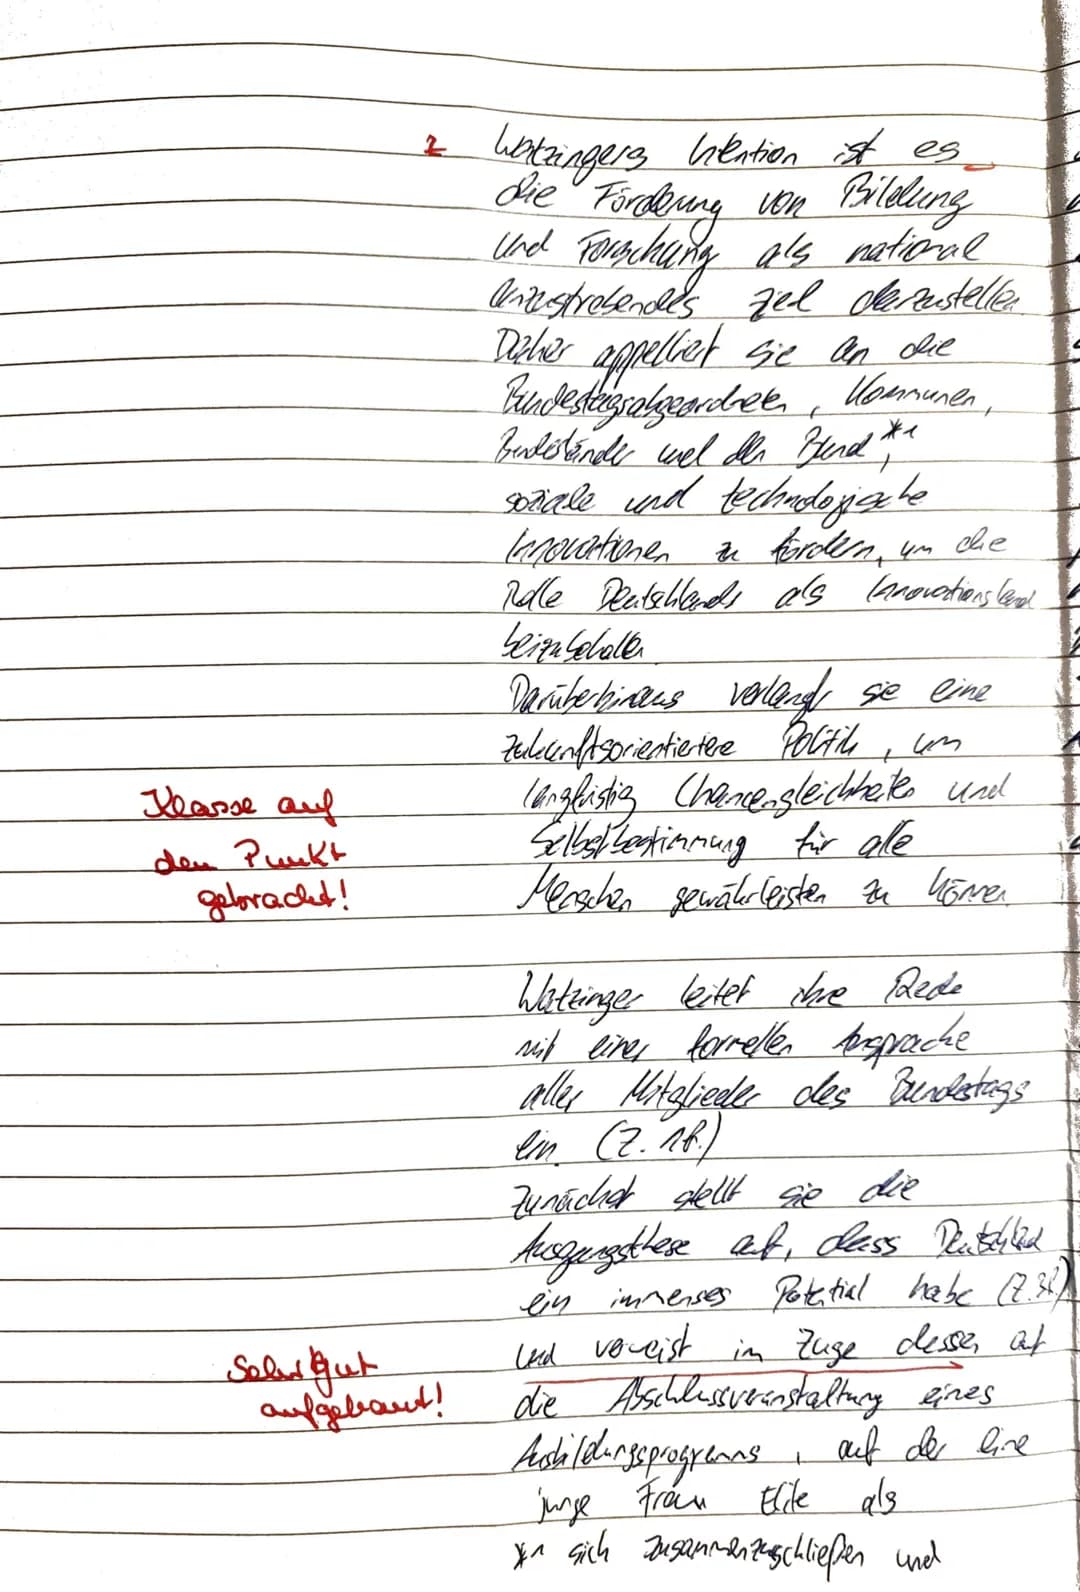 2 Watzingers Intention ist es
die Förderung von Bildung
und Forschung als national
anzustrebendes Ziel darzustellen
Daher appelliert sie an die
Bundestagsabgeordneten, Kommunen,
und den Bund *1,
soziale und technologische
Innovationen zu fördern, um die
Rolle Deutschlands als Innovationsland
beizubehalten
Darüberhinaus verlangt sie eine
zukunftsorientiertere Politik, um
langfristig Chancengleichheiten und
Klasse auf
den Punkt
gebracht!
Selbstbestimmung für alle
Menschen gewährleisten zu können.
Watzinger leitet ihre Rede
mit einer formellen Ansprache
aller Mitglieder des Bundestags
ein. (Z. 1f.)
Zunächst stellt sie die
Ausgangsthese auf, dass Deutschland
ein immenses Potential habe (Z.3f.)
und verweist im Zuge dessen auf
Sehr gut
aufgebaut!
die Abschlussveranstaltung eines
Ausbildungsprogramms, auf der eine
junge Frau Elite als
*1 sich zusammenzuschließen und